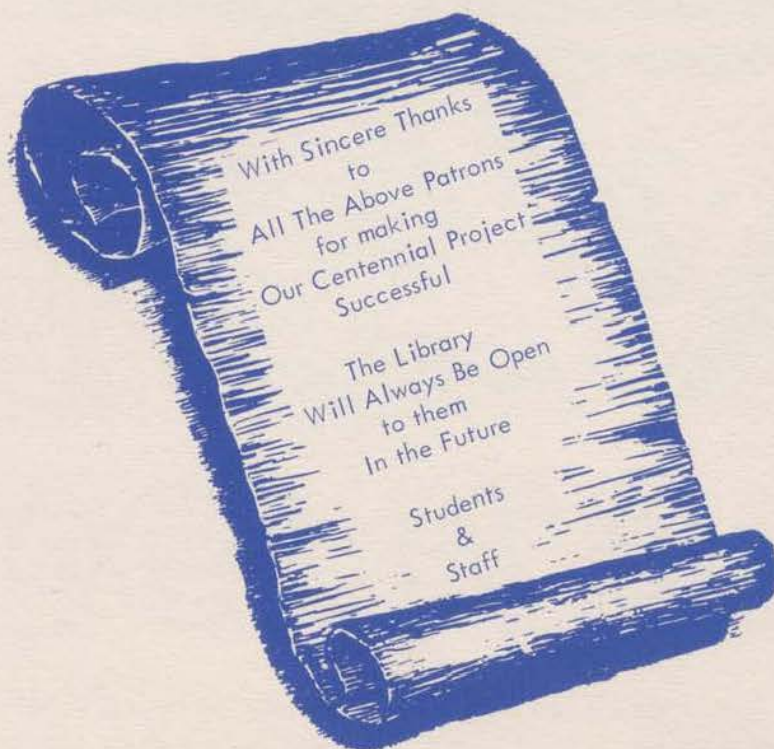 With Sincere Thanks
to
All The Above Patrons
for making
Our Centennial Project
Successful
The Library
Will Always Be Open
to them
In the Future
Students
&
Staff